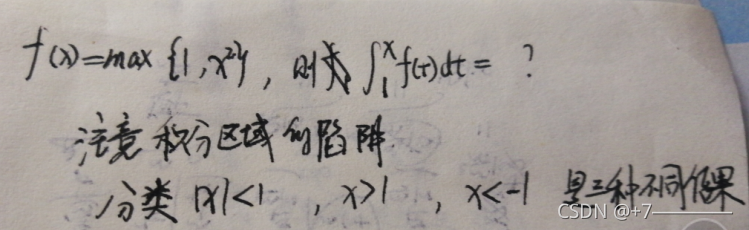 f(x)=max{1,x²}, 则求∫₁ˣf(t)dt= ?
注意积分区域的陷阱
分类 |x|<1 , x>1 , x<-1 是三种不同结果
CSDN @+7————